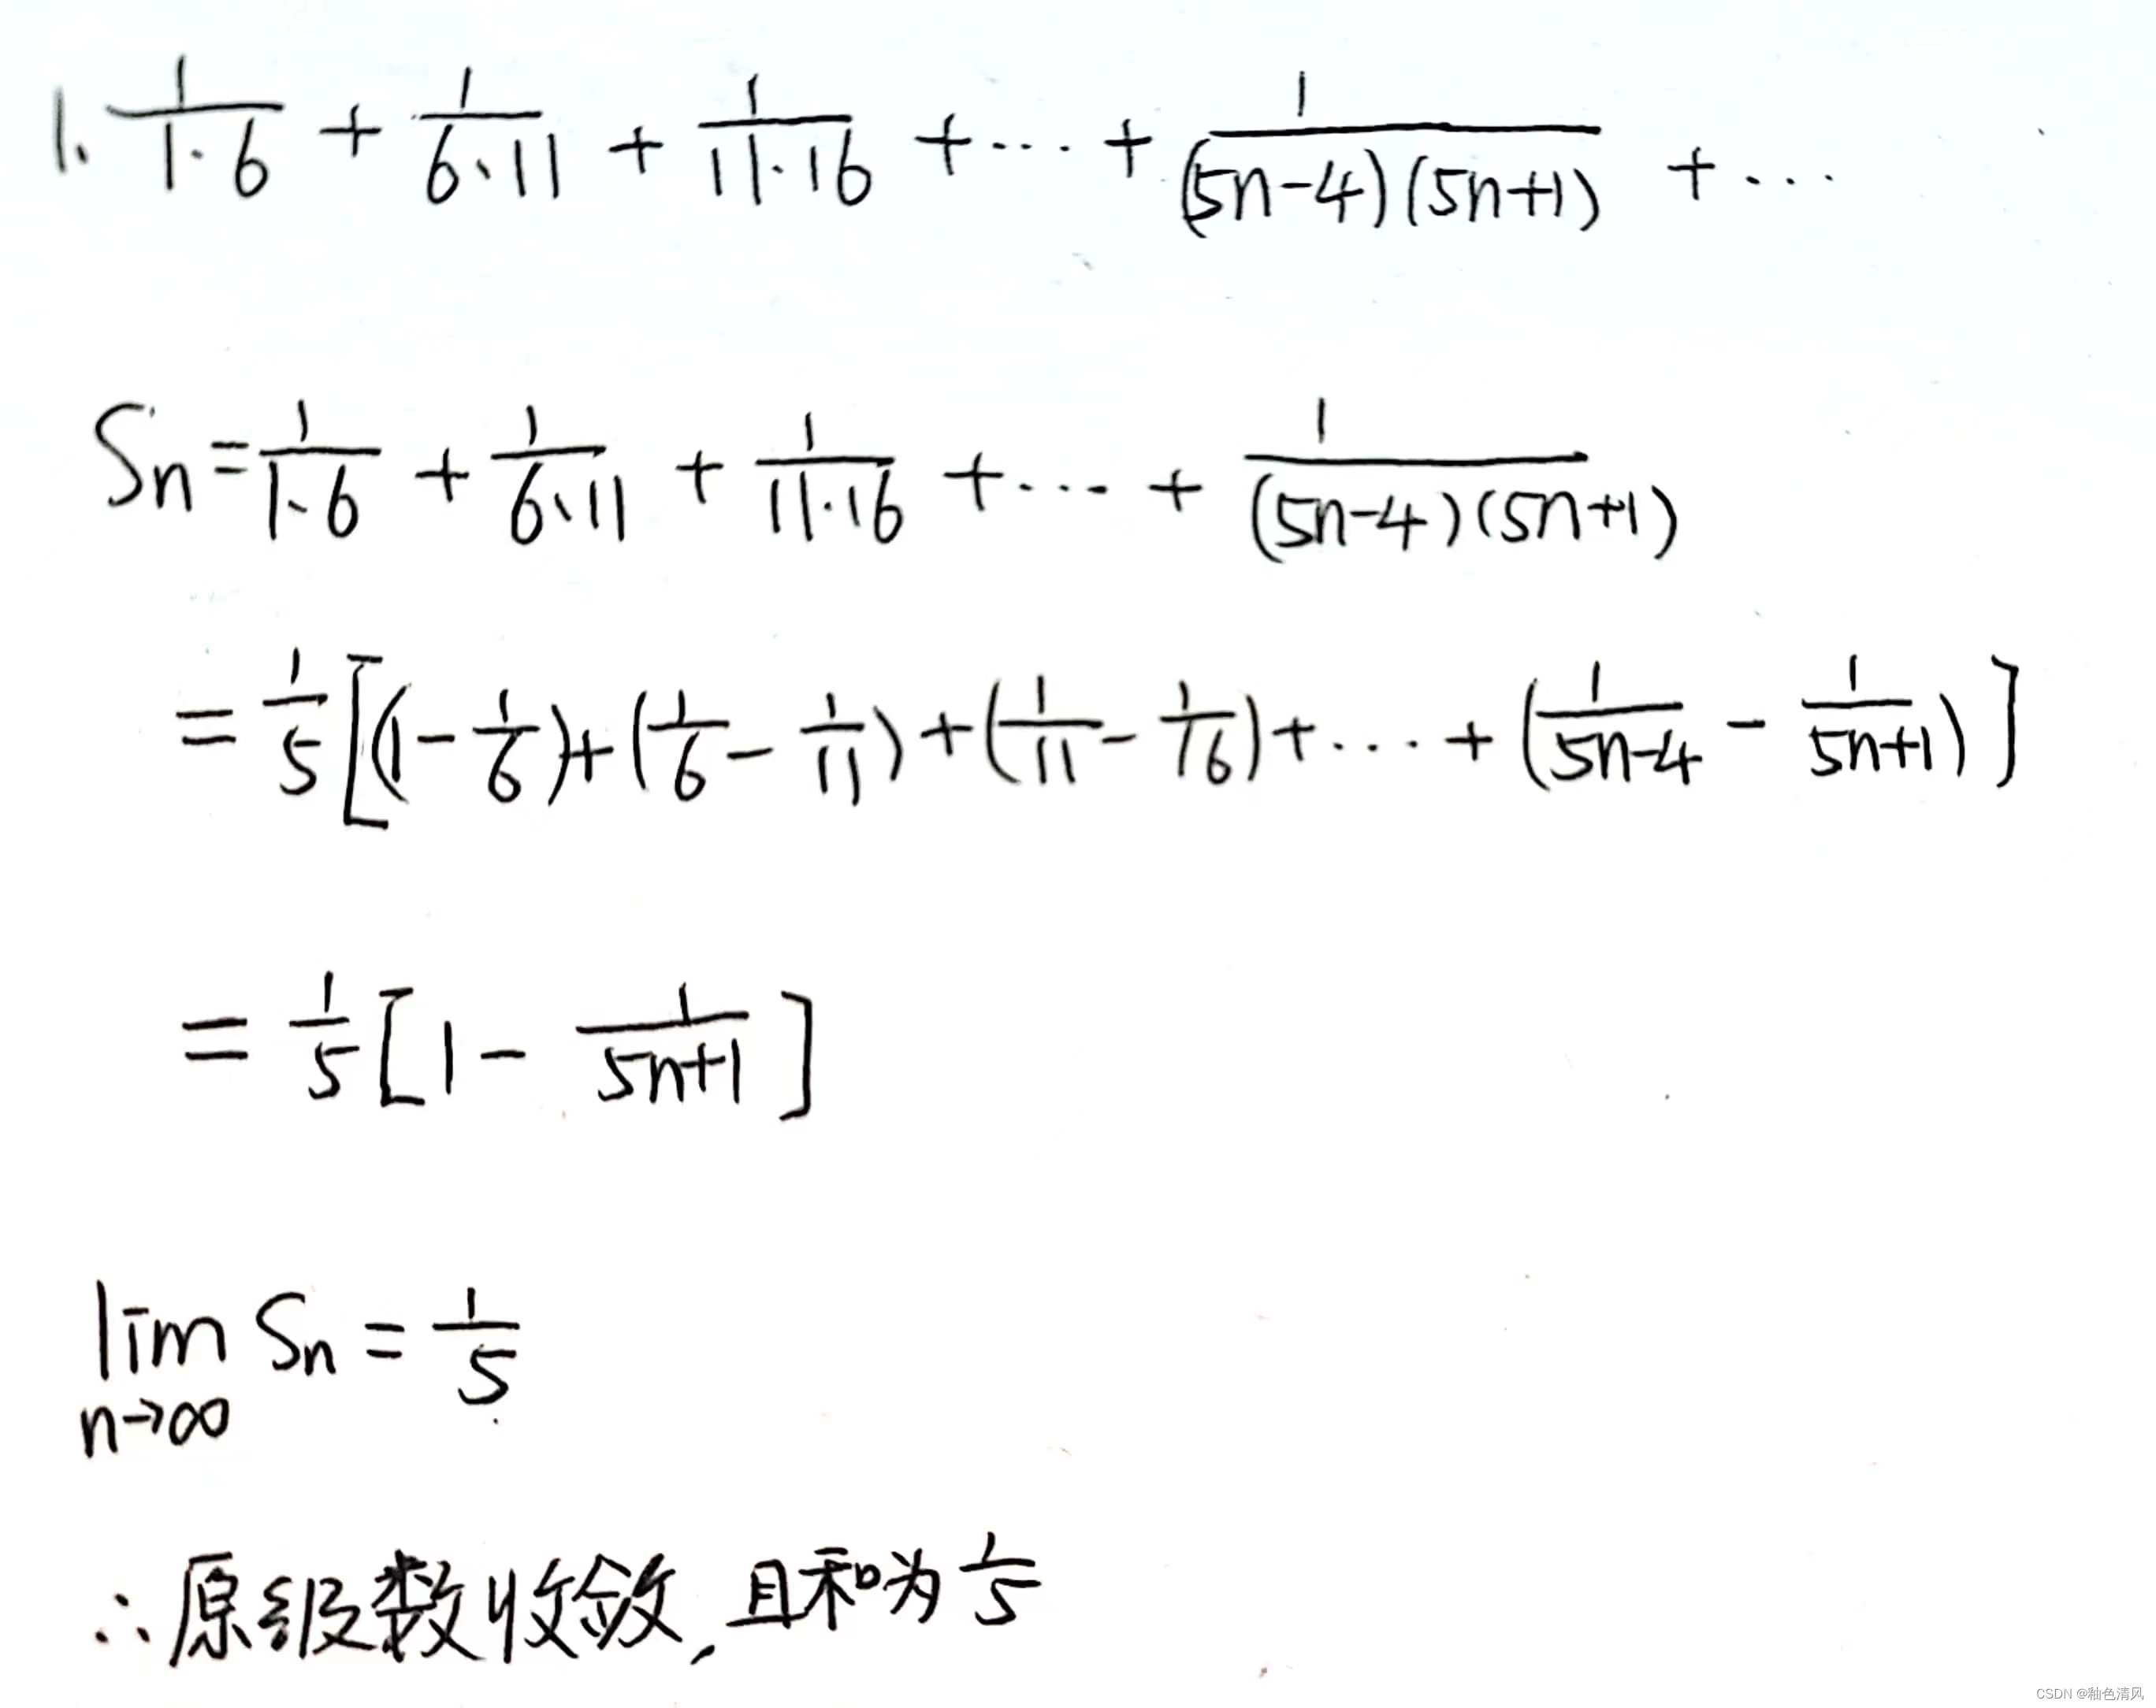 1. \frac{1}{1·6} + \frac{1}{6·11} + \frac{1}{11·16} + ··· + \frac{1}{(5n-4)(5n+1)} + ···
Sn = \frac{1}{1·6} + \frac{1}{6·11} + \frac{1}{11·16} + ···· + \frac{1}{(5n-4)(5n+1)}
= \frac{1}{5}[(1-\frac{1}{6})+(\frac{1}{6}-\frac{1}{11})+(\frac{1}{11}-\frac{1}{16})+····+(\frac{1}{5n-4}-\frac{1}{5n+1})]
= \frac{1}{5}[1-\frac{1}{5n+1}]
lim Sn = \frac{1}{5}
n→∞
∴原级数收敛,且和为\frac{1}{5}
CSDN @釉色清风